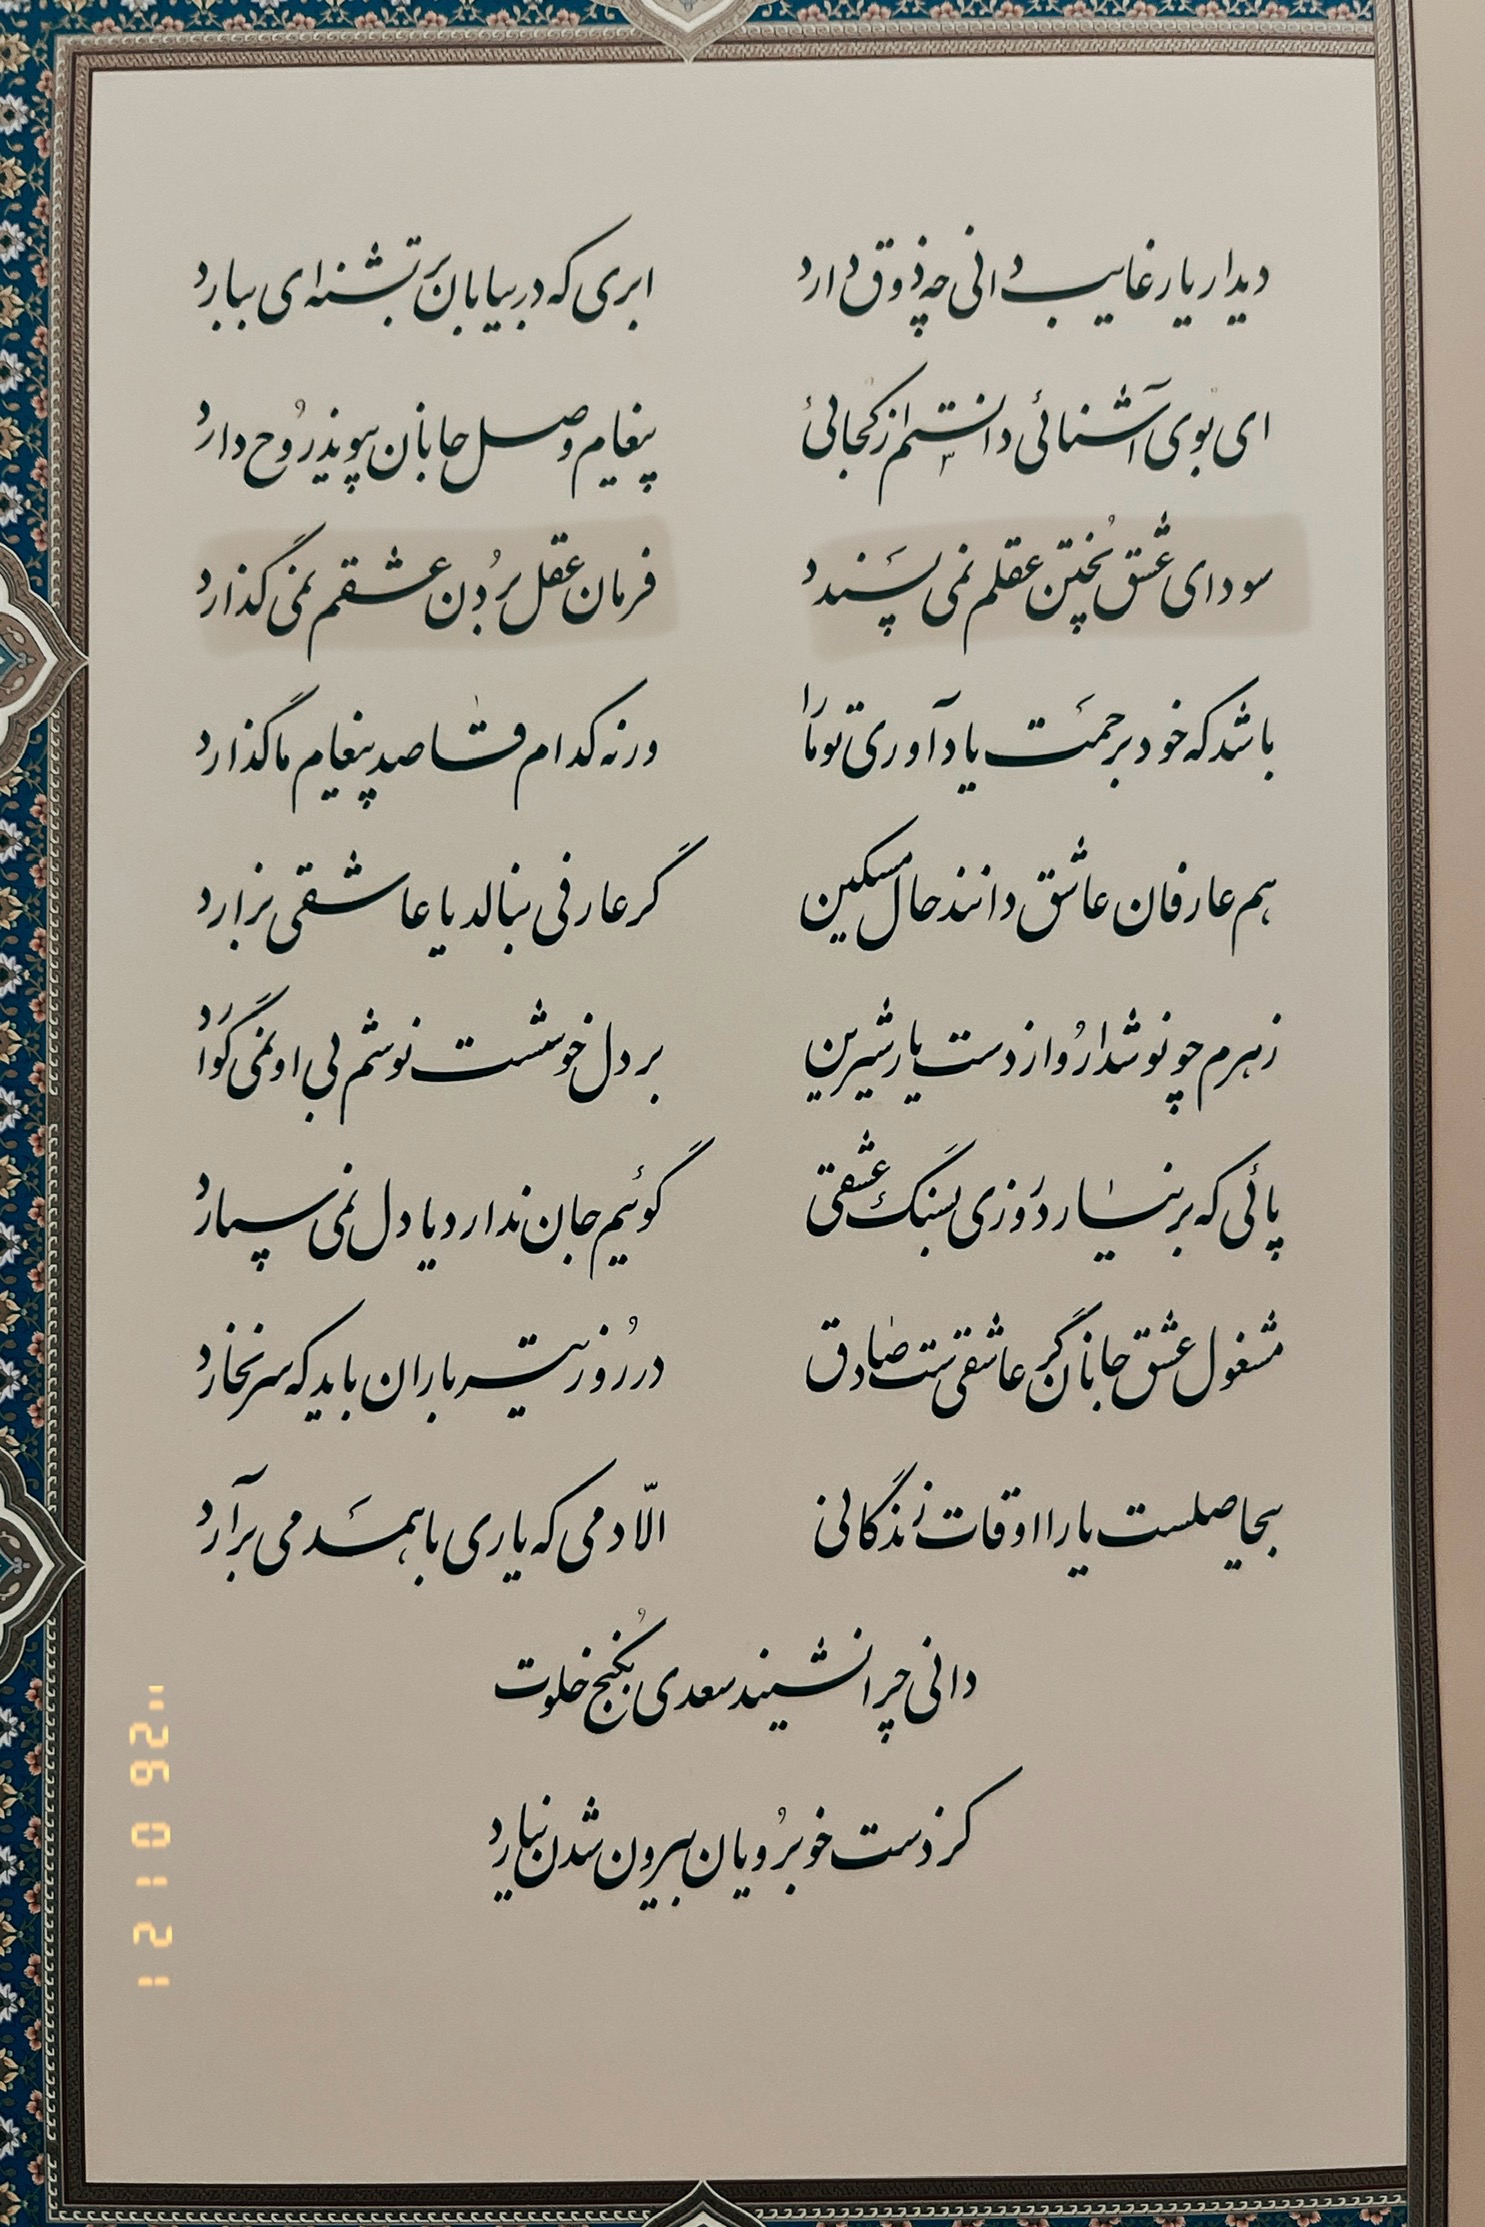 دیدار یار غایب دانی چه ذوق دارد ابری که در بیابان بر تشنه‌ای ببارد
ای بُوی آشنائی دانستم از کُجائی پیغام وصل جانان پیوند رُوح دارد
سودای عشق پُختن عقلم نمی پَسندد فرمان عقل بُردن عشقم نمی گذارد
باشد که خود برحمَت یاد آوری تو ما را ورنه کدام قاصد پیغام ما گذارد
هم عارفان عاشق دانند حال مسکین گر عارفی بنالد یا عاشقی بزارد
زهرم چو نوشدارُو از دست یار شیرین بر دل خوشست نوشم بی او نمی گوارَد
پائی که برنیاید رُوزی بسَنگ عشقی گوئیم جان ندارد یا دل نمی سپارد
مشغول عشق جانان گر عاشقی ست صادق در رُوز تیرباران باید که سر نخارد
بیحاصلست یارا اوقات زندگانی الّا دمی که یاری با همدَمی برآرد
دانی چرا نشیند سعدی بکُنج خلوت
کز دست خوبرُویان بیرون شدن نیارد
1 21 0 92"